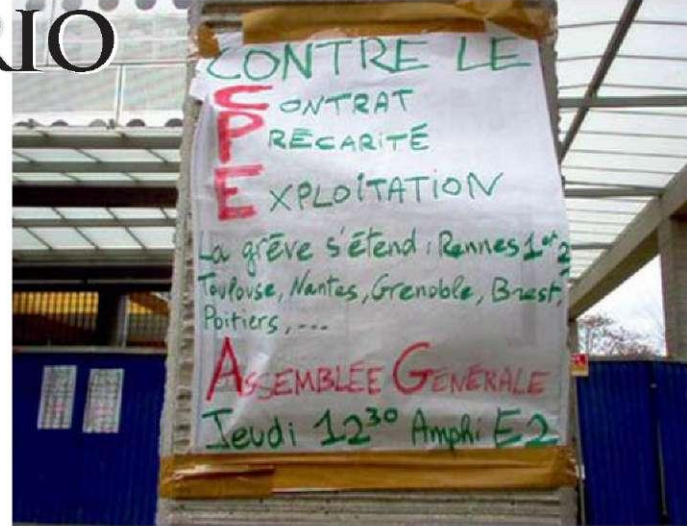 RIO
CONTRE LE
CONTRAT
PRÉCARITÉ
EXPLOITATION
La grève s'étend : Rennes 1 et 2
Toulouse, Nantes, Grenoble, Brest,
Poitiers, ...
ASSEMBLÉE GÉNÉRALE
Jeudi 12³⁰ Amphi E2